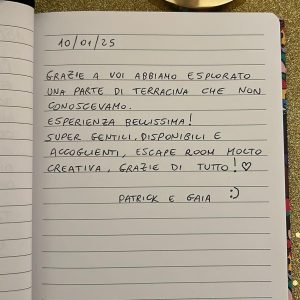 10/01/25
GRAZIE A VOI ABBIAMO ESPLORATO
UNA PARTE DI TERRACINA CHE NON
CONOSCEVAMO.
ESPERIENZA BELLISSIMA!
SUPER GENTILI, DISPONIBILI E
ACCOGLIENTI, ESCAPE ROOM MOLTO
CREATIVA, GRAZIE DI TUTTO! ♡
PATRICK E GAIA :)